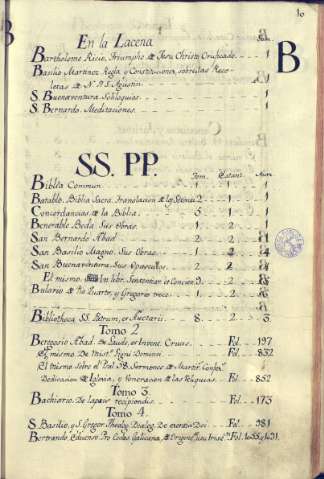 10
B
B
En la Lacena
Bartholome Ricio, Triumpho de Jesu Christo Crucificado. 1
Basilio Martinez Regla y Constituciones, sobre las Reco-
letas de N. P. S. Agustin. 1
S. Buenaventura Soliloquios. 1
S. Bernardo. Meditaciones. 1
SS. PP.
Tom. Estant. Num.
Biblia Commun. 1 1 1
Batablo. Biblia Sacra, translacion de 2 1
Concordancias de la Biblia. 5 1 1
Benerable Beda Sus Obras. 1 2
San Bernardo Abad 2 2
San Basilio Magno, Sus Obras. 1 2 4
San Buenaventura. Sus Opusculos. 2 2
El mismo In libr. Sententiar. 2
Bulario de Pio Quarto, y Gregorio trece. 1 2
Bibliotheca SS. Patrum, et Auctarii. 8 2 3
Tomo 2
Berengosio Abad. De Laude, et Invent. Crucis. Fol. 197
El mismo De Mist. Ligni Dominici. Fol. 832
El mismo Sobre el Sermones de Martir. Confes.
Dedicacion de Iglesia, y Veneracion de las Reliquias. Fol. 852
Tomo 3
Bachiario. De lapsis recipiendis. Fol. 173
Tomo 4
S. Basilio, y S. Gregor. Theolog. Dialog. De Fol. 981
Bertrando Eduense Pro Eccles. Galicana, de Origine Fol. 1055 y 1031.